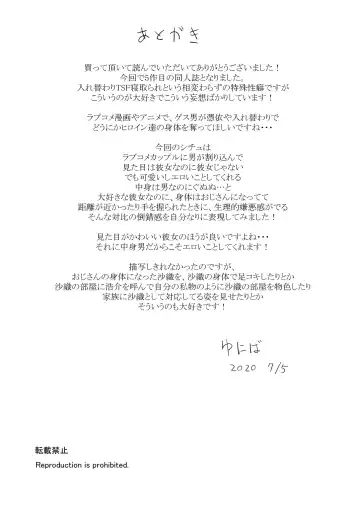 あとがき
買って頂いて読んでいただいてありがとうございました！
今回で5作目の同人誌となりました。
入れ替わりTSF寝取られという相変わらずの特殊性癖ですが
こういうのが大好きでこういう妄想ばかりしています！
ラブコメ漫画やアニメで、ゲス男が憑依や入れ替わりで
どうにかヒロイン達の身体を奪ってほしいですね・・・
今回のシチュは
ラブコメカップルに男が割り込んで
見た目は彼女なのに彼女じゃない
でも可愛いしエロいことしてくれる
中身は男なのにぐぬぬ…と
大好きな彼女なのに、身体はおじさんになってて
距離が近かったり手を握られたときに、生理的嫌悪感がでる
そんな対比の倒錯感を自分なりに表現してみました！
見た目がかわいい彼女のほうが良いですよね・・・
それに中身男だからこそエロいことしてくれます！
描写しきれなかったのですが、
おじさんの身体になった沙織を、沙織の身体で足コキしたりとか
沙織の部屋に浩介を呼んで自分の私物のように沙織の部屋を物色したり
家族に沙織として対応してる姿を見せたりとか
そういうのも大好きです！
ゆにば
2020 7/5
転載禁止
Reproduction is prohibited.